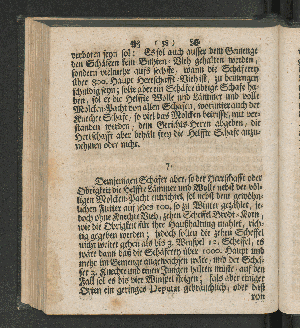 ( 58 )
verboten seyn soll: Es sol auch ausser dem Gemenge
den Schäfern kein Buthen-Vieh gehalten werden,
sondern vielmehr aufs höchste, wann die Schäferey
über 800. Haupt Herrschafft-Viehist, zu denenigen
schuldig seyn; solte aber ein Schäfer übrige Schafe ha-
ben, sol er die Helffte Wolle und Lämmer und volle
Molcken-Pacht von allen Schafen, worunter auch der
Knechte Schafe, so viel das Molcken betrifft, mit ver-
standen werden, dem Gerichts-Herrn abgeben, die
Herrschafft aber behält frey die Helffte Schafe anzu-
nehmen oder nicht.
7.
Demjenigen Schäfer aber, so der Herrschafft oder
Obrigkeit die Helffte Lämmer und Wolle nebst der völ-
ligen Molcken-Pacht entrichtet, sol nebst dem gewöhn-
lichen Futter auf jedes 100, so zu Winter gezählet, je-
doch ohne Knechte Vieh, zehen Scheffel Brodt-Korn,
wie die Obrigkeit für ihre Haußhaltung mahlet, rich-
tig gegeben werden; jedoch sollen die zehen Scheffel
nicht weiter gehen als bis 3. Winspel 12. Scheffel, es
wäre dann daß die Schäfereyen über 1000. Haupt und
mehr im Gemenge angewachsen wäre, und der Schä-
fer 3. Knechte und einen Jungen halten müste, auf den
Fall sol es bis vier Winspel steigen; falls aber einiger
Orten ein geringes Deputat gebräuchlich, oder daß
von